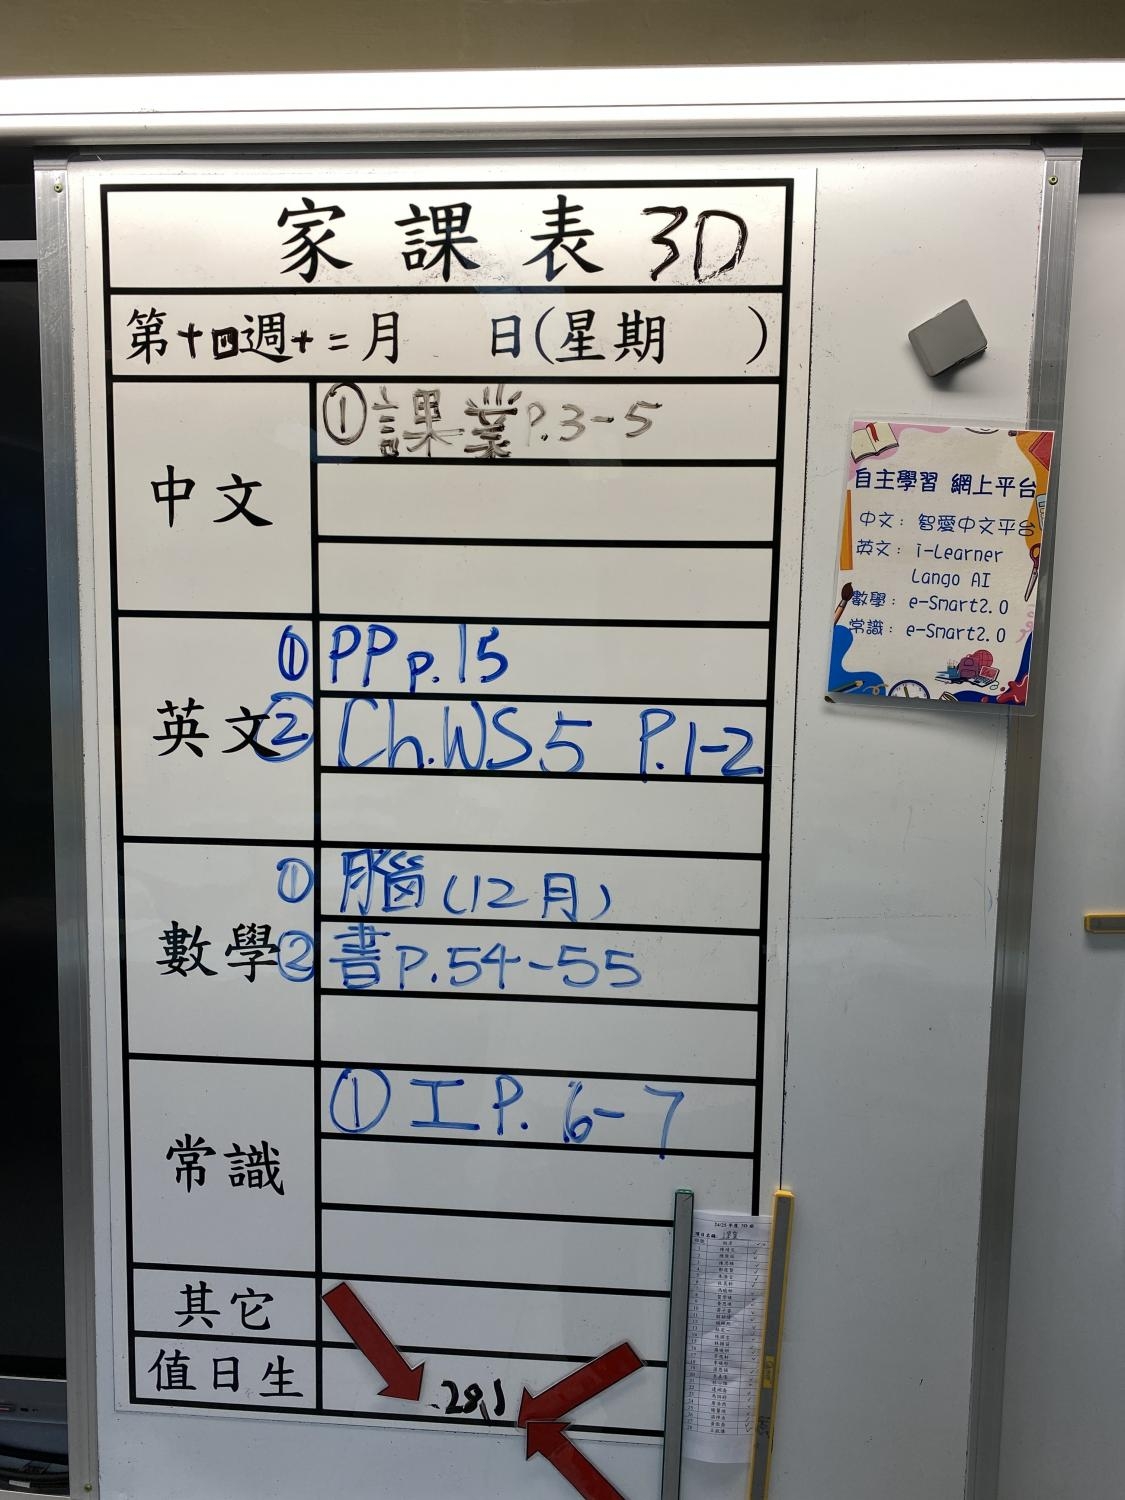 家課表 3D
第十四週十二月 日(星期 )
中文
① 課業 P.3-5
英文
① PP p.15
② Ch.WS.5 P.1-2
數學
① 腦(12月)
② 書 P.54-55
常識
① 工 P. 6-7
其它
值日生
28,1
自主學習 網上平台
中文：智愛中文平台
英文：i-Learner
Lango AI
數學：e-Smart2.0
常識：e-Smart2.0
24/25 年度 3D 班